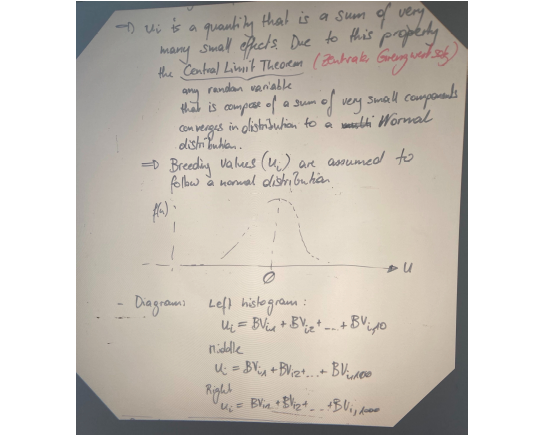 ⇒ ui is a quantity that is a sum of very
many small effects. Due to this property
the Central Limit Theorem (Zentraler Grenzwertsatz)
any random variable
that is compose of a sum of very small components
converges in distribution to a Normal
distribution.
⇒ Breeding values (ui) are assumed to
follow a normal distribution
f(u)
0
u
- Diagram: Left histogram:
ui = BVi1 + BVi2 + ... + BVi,10
Middle
ui = BVi1 + BVi2 + ... + BVi,100
Right
ui = BVi1 + BVi2 + ... + BVi,1000